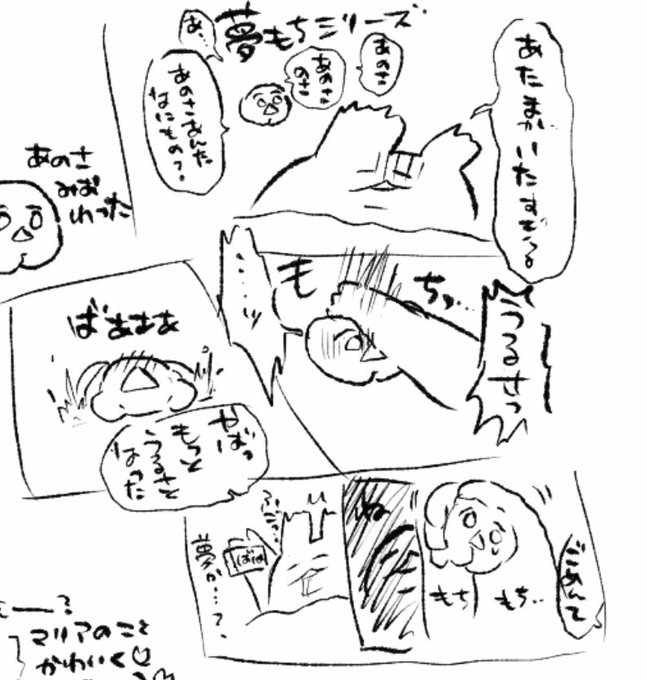 夢もちシリーズ
あたまがいたすぎる
あのさ
あのさ
のさ
あ、
あのさあんた
なにもの?
あのさ
みお
わった
うるさっ
もちッ…
……ッ
ばああああ
やばっ
もっと
うるさく
なった
ごめんて
もち
もち…
ね
夢か…?
マリアのこと
かわいく♡